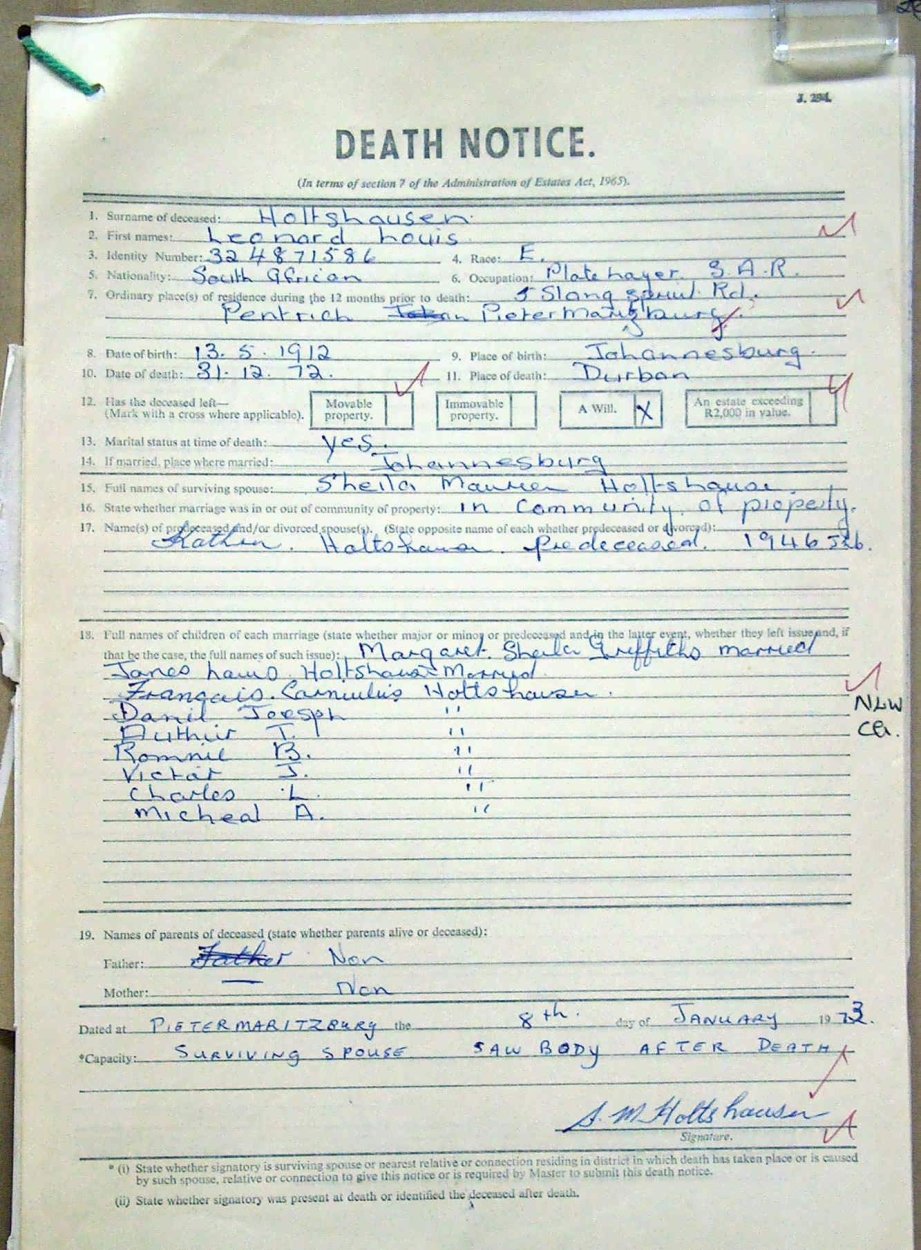 J. 294.
DEATH NOTICE.
(In terms of section 7 of the Administration of Estates Act, 1965).
1. Surname of deceased: Holtshausen.
2. First names: Leonard Louis
3. Identity Number: 324871586 4. Race: E.
5. Nationality: South African 6. Occupation: Plate Layer S.A.R.
7. Ordinary place(s) of residence during the 12 months prior to death: 5 Slang spruit Rd.
Pentrich Pietermaritzburg
8. Date of birth: 13. 5. 1912 9. Place of birth: Johannesburg.
10. Date of death: 31. 12. 72. 11. Place of death: Durban
12. Has the deceased left— (Mark with a cross where applicable). Movable property. Immovable property. A Will. X An estate exceeding R2,000 in value.
13. Marital status at time of death: yes.
14. If married, place where married: Johannesburg
15. Full names of surviving spouse: Sheila Maureen Holtshausen
16. State whether marriage was in or out of community of property: in Community of property.
17. Name(s) of predeceased and/or divorced spouse(s). (State opposite name of each whether predeceased or divorced):
Holtshausen predeceased. 1946 Jhb.
18. Full names of children of each marriage (state whether major or minor or predeceased and in the latter event, whether they left issue and, if
that be the case, the full names of such issue): Margaret Sheila Griffiths married
Holtshausen Married
Holtshausen.
Danil Joesph "
Authur T. "
Ronnie B. "
Victor J. "
Charles L. "
Micheal A. "
NLW
CG.
19. Names of parents of deceased (state whether parents alive or deceased):
Father: Father Non
Mother: — Non
Dated at PIETERMARITZBURG the 8th. day of JANUARY 1973.
*Capacity: SURVIVING SPOUSE SAW BODY AFTER DEATH
S. M. Holtshausen
Signature.
* (i) State whether signatory is surviving spouse or nearest relative or connection residing in district in which death has taken place or is caused
by such spouse, relative or connection to give this notice or is required by Master to submit this death notice.
(ii) State whether signatory was present at death or identified the deceased after death.